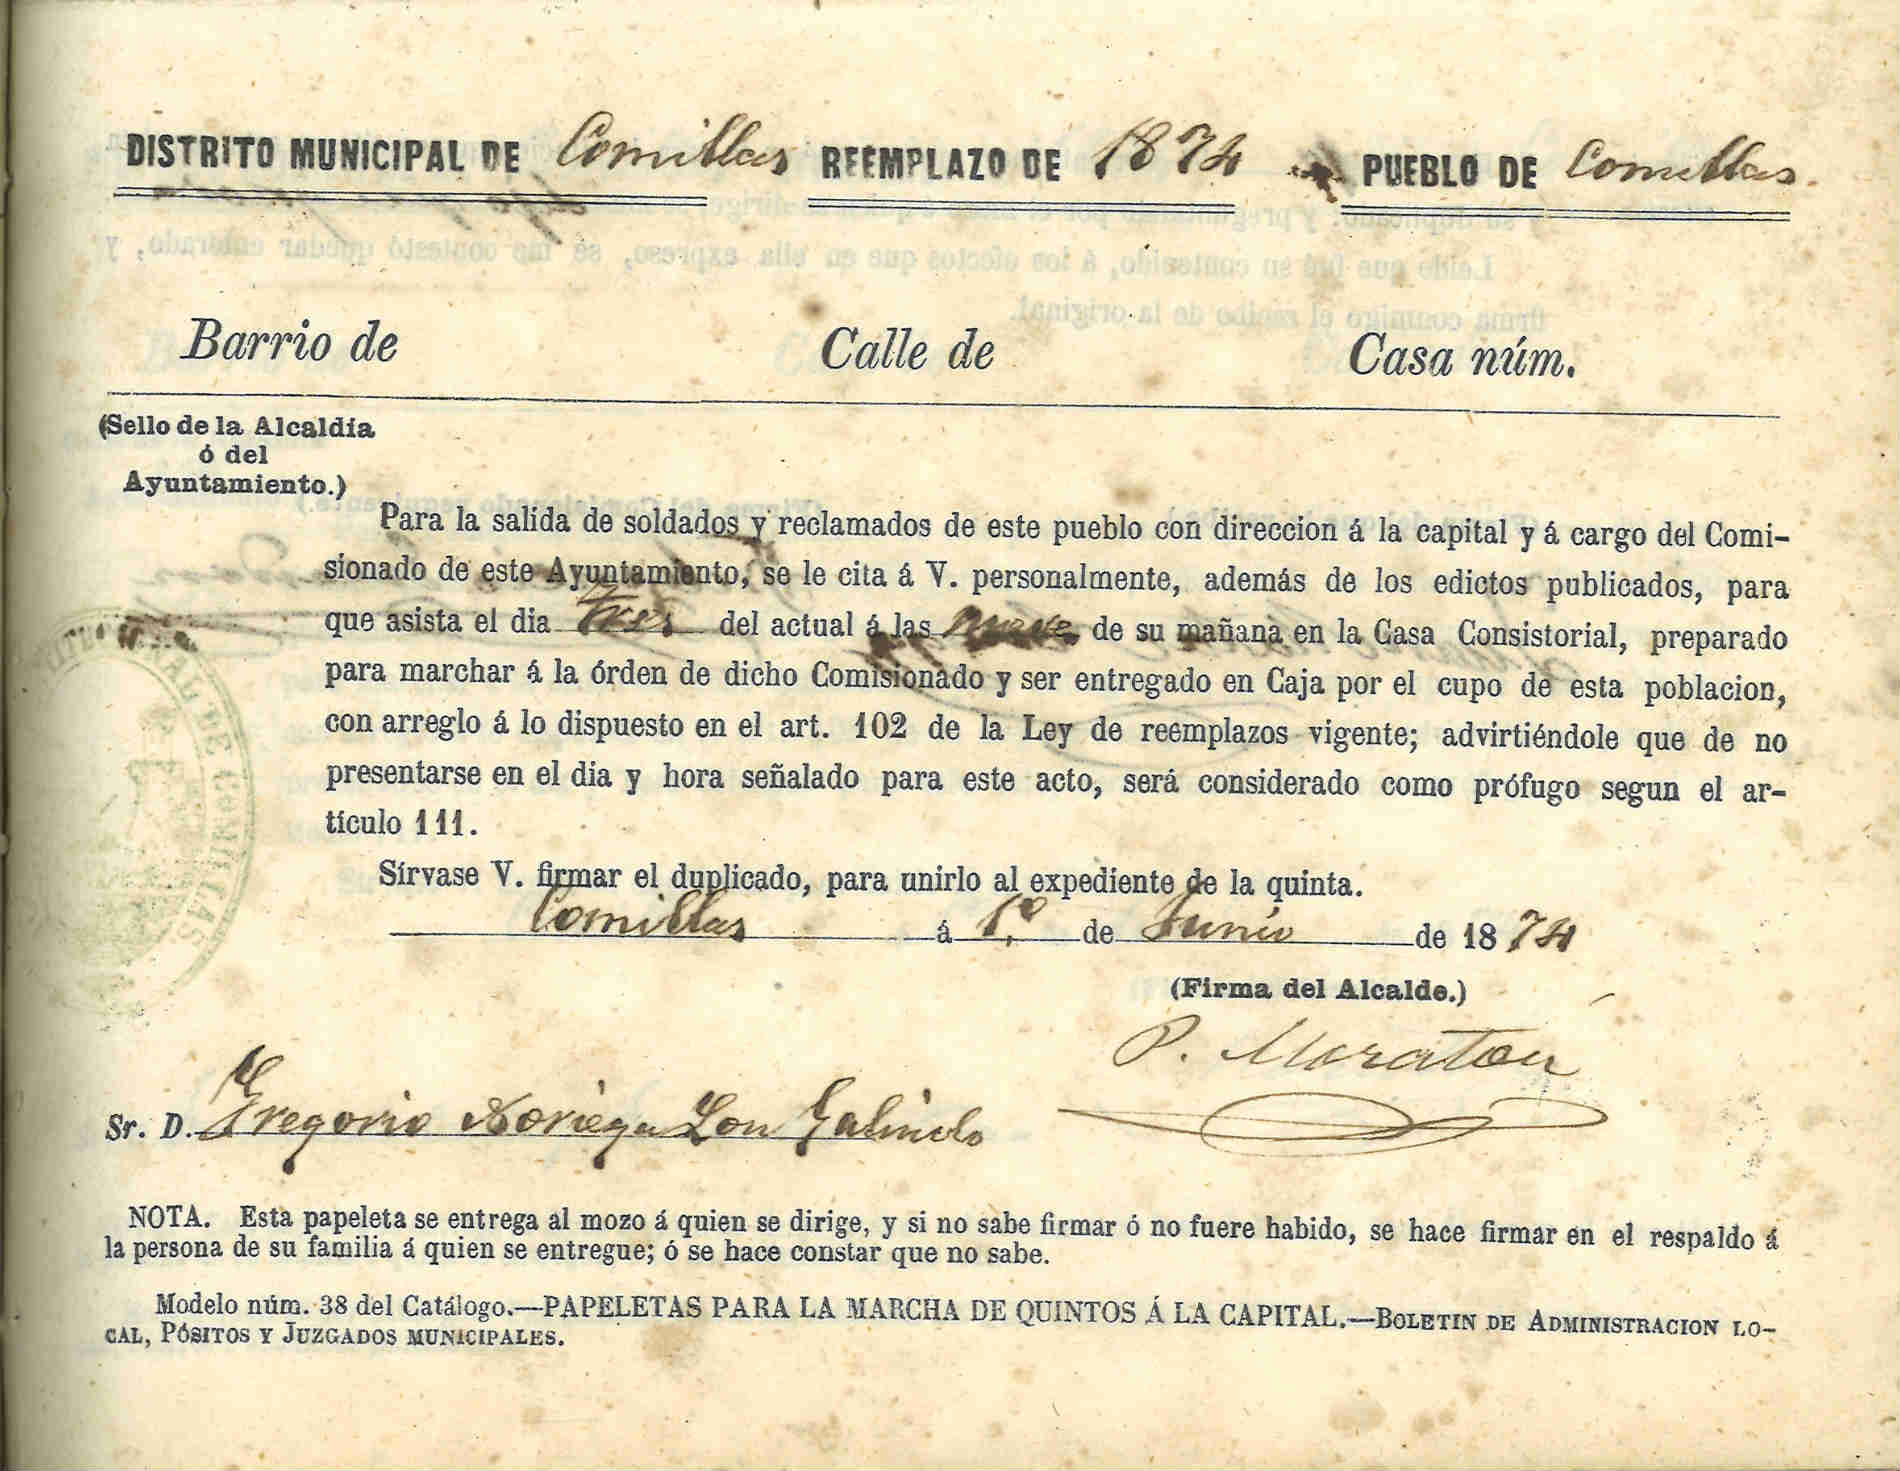 DISTRITO MUNICIPAL DE Comillas REEMPLAZO DE 1874 PUEBLO DE Comillas
Barrio de Calle de Casa núm.
(Sello de la Alcaldía
ó del
Ayuntamiento.)
Para la salida de soldados y reclamados de este pueblo con direccion á la capital y á cargo del Comi-
sionado de este Ayuntamiento, se le cita á V. personalmente, además de los edictos publicados, para
que asista el dia tres del actual á las nueve de su mañana en la Casa Consistorial, preparado
para marchar á la órden de dicho Comisionado y ser entregado en Caja por el cupo de esta poblacion,
con arreglo á lo dispuesto en el art. 102 de la Ley de reemplazos vigente; advirtiéndole que de no
presentarse en el dia y hora señalado para este acto, será considerado como prófugo segun el ar-
tículo 111.
Sírvase V. firmar el duplicado, para unirlo al expediente de la quinta.
Comillas á 1.º de Junio de 1874
(Firma del Alcalde.)
P. Moratón
Sr. D. Gregorio Noriega Lon Galindo
NOTA. Esta papeleta se entrega al mozo á quien se dirige, y si no sabe firmar ó no fuere habido, se hace firmar en el respaldo á
la persona de su familia á quien se entregue; ó se hace constar que no sabe.
Modelo núm. 38 del Catálogo.—PAPELETAS PARA LA MARCHA DE QUINTOS Á LA CAPITAL.—BOLETIN DE ADMINISTRACION LO-
CAL, PÓSITOS Y JUZGADOS MUNICIPALES.